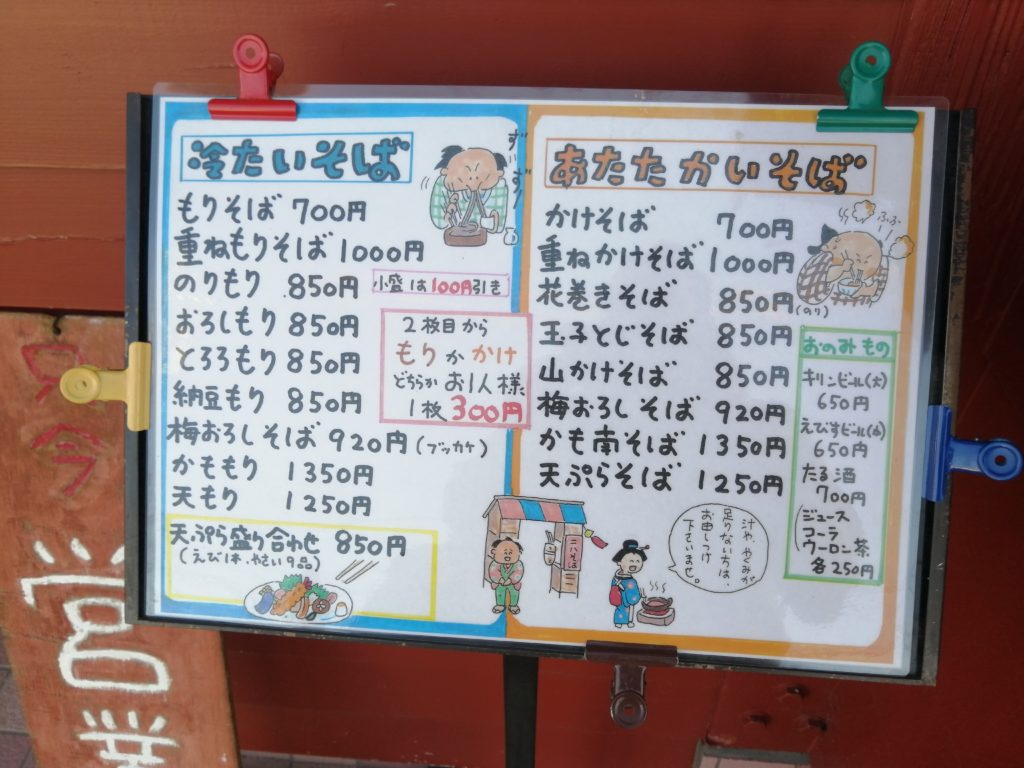 冷たいそば
もりそば 700円
重ねもりそば 1000円
のりもり 850円
小盛は100円引き
おろしもり 850円
とろろもり 850円
納豆もり 850円
梅おろしそば 920円(ブッカケ)
かももり 1350円
天もり 1250円
2枚目から
もりかかけ
どちらかお1人様
1枚300円
天ぷら盛り合わせ 850円
(えび1本.やさい9品)
ずずずーっ
あたたかいそば
かけそば 700円
重ねかけそば 1000円
花巻きそば 850円
(のり)
玉子とじそば 850円
山かけそば 850円
梅おろしそば 920円
かも南そば 1350円
天ぷらそば 1250円
ふふ
おのみもの
キリンビール(大)
650円
えびすビール(小)
650円
たる酒
700円
ジュース
コーラ
ウーロン茶
各250円
二八そば
汁や、やくみが
足りない方は、
お申しつけ
下さいませ。
只今
営業